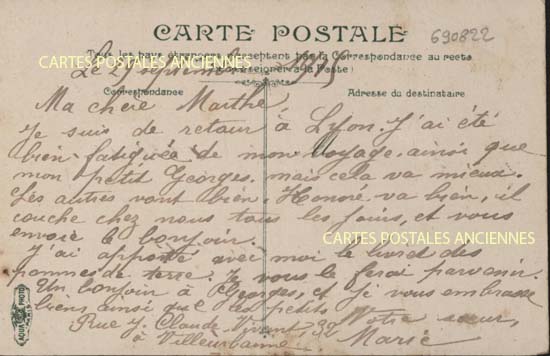 CARTE POSTALE
690822
Tous les pays étrangers n'acceptent pas la Correspondance au recto
(Se renseigner à la Poste)
CARTES POSTALES ANCIENNES
Le 29 septembre 1915
Correspondance
Adresse du destinataire
Ma chère Marthe,
Je suis de retour à Lyon. J'ai été
bien fatiguée de mon voyage, ainsi que
mon petit Georges, mais cela va mieux.
Les autres vont bien. Honoré va bien, il
couche chez nous tous les jours, et vous
envoie le bonjour.
CARTES POSTALES ANCIENNES
J'ai apporté avec moi le livret des
pommes de terre. Je vous le ferai parvenir.
Un bonjour à Georges, et je vous embrasse
bien, ainsi que les petits
Votre sœur,
Rue J. Claude Vivant
Marie
à Villeurbanne
AQUA PHOTO